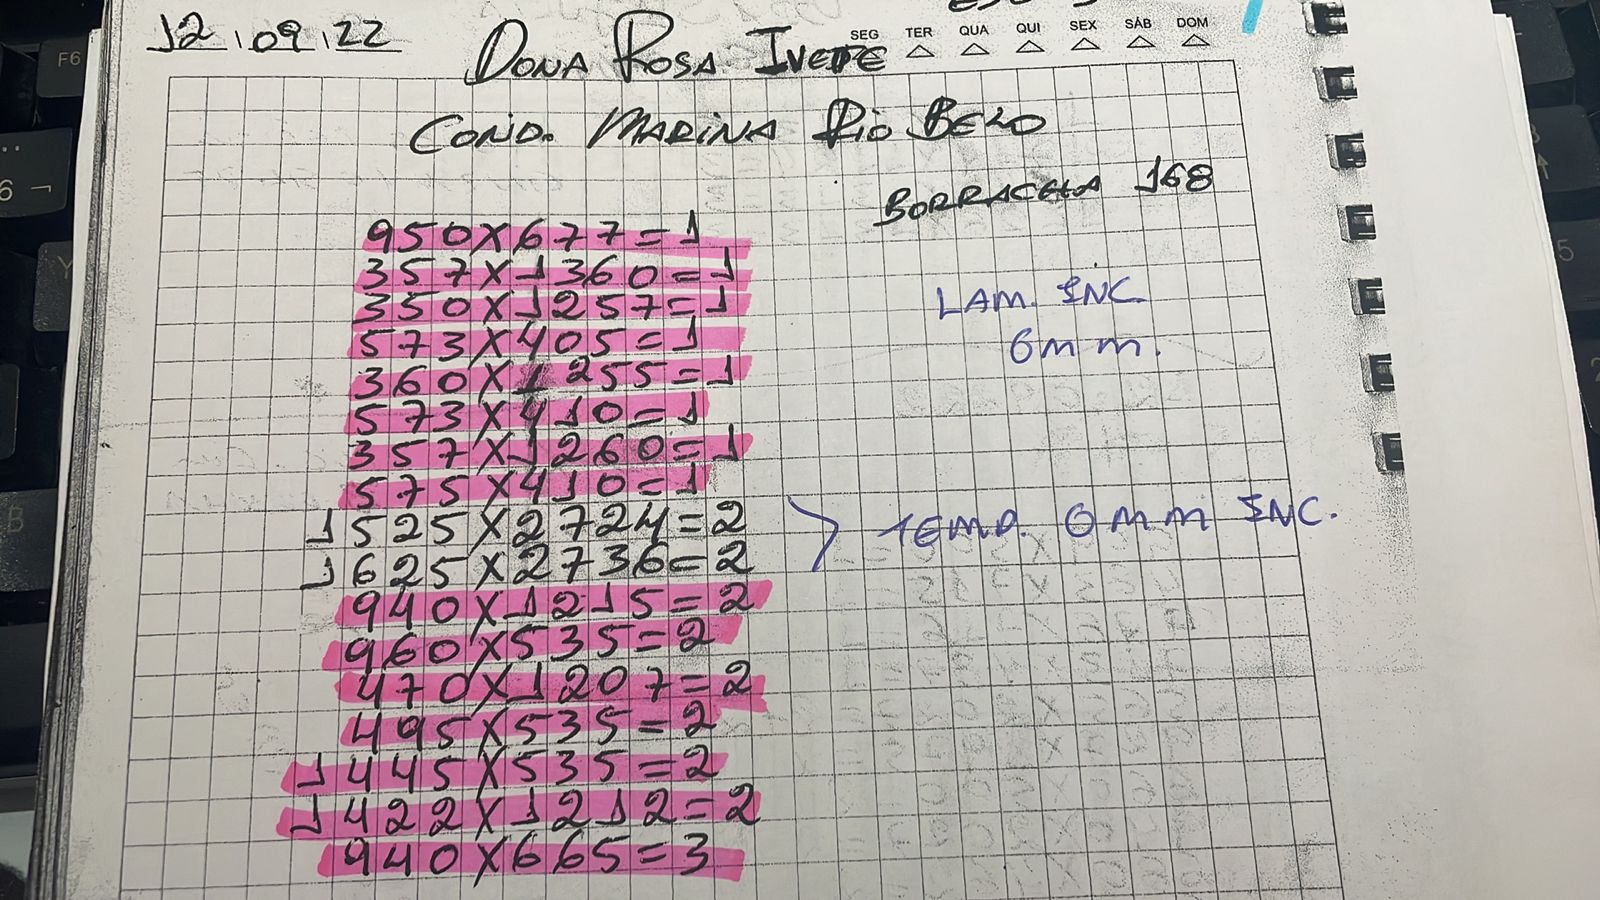 12/09/22
DONA ROSA IVETE
SEG TER QUA QUI SEX SÁB DOM
COND. MARINA RIO BELO
BORRACHA 168
950X677=1
357X1360=1
350X1257=1
573X405=1
360X1255=1
573X410=1
357X1260=1
575X410=1
1525X2724=2
1625X2736=2
940X1215=2
960X535=2
470X1207=2
495X535=2
1445X535=2
1422X1212=2
940X665=3
LAM. INC.
6mm.
TEMP. 6mm INC.
F6
6
Y
B
5